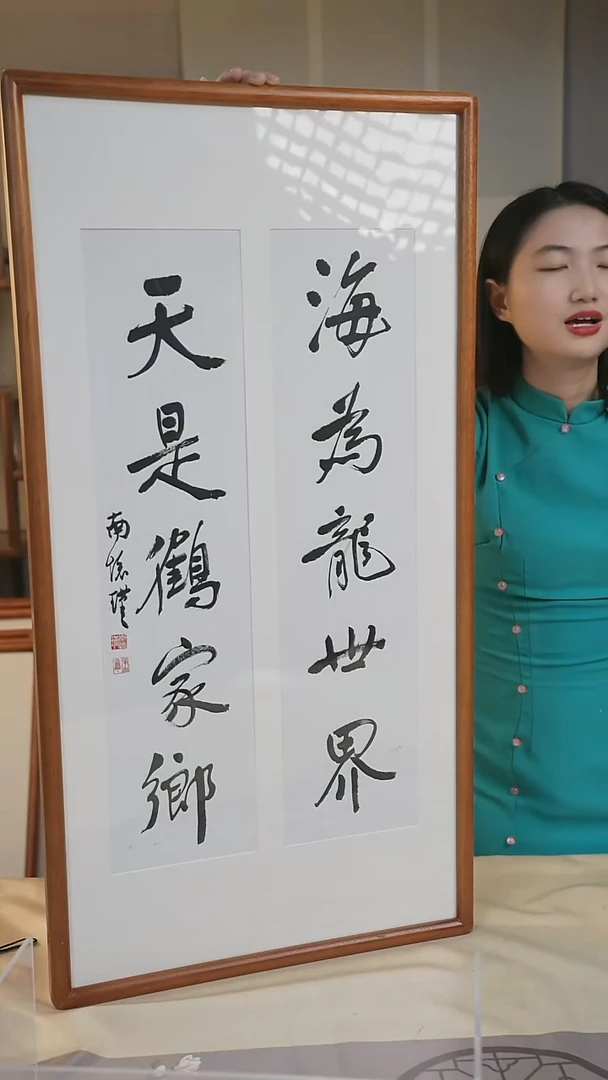 海為龍世界
天是鶴家鄉
南懷瑾